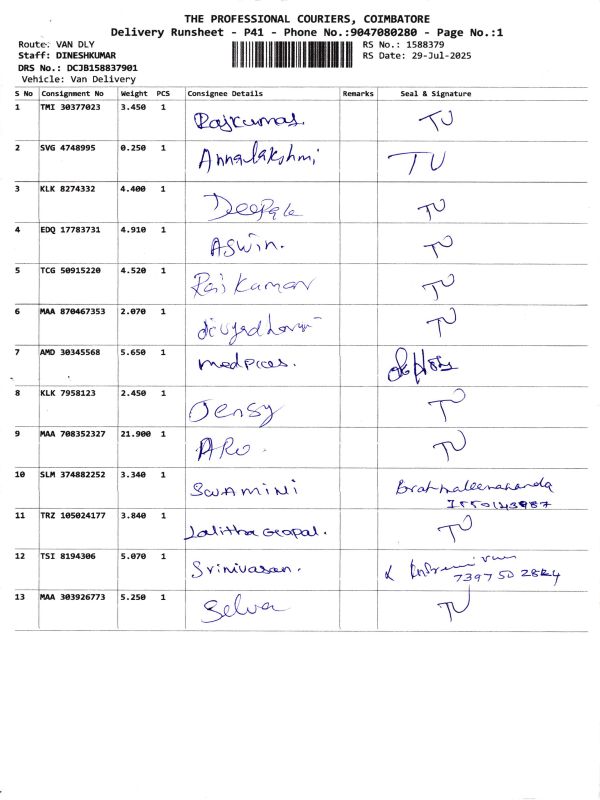 THE PROFESSIONAL COURIERS, COIMBATORE
Delivery Runsheet - P41 - Phone No.:9047080280 - Page No.:1
Route: VAN DLY RS No.: 1588379
Staff: DINESHKUMAR RS Date: 29-Jul-2025
DRS No.: DCJB158837901
Vehicle: Van Delivery
S No Consignment No Weight PCS Consignee Details Remarks Seal & Signature
1 TMI 30377023 3.450 1 Rajkumar TU
2 SVG 4748995 0.250 1 Annalakshmi TU
3 KLK 8274332 4.400 1 Deepala TU
4 EDQ 17783731 4.910 1 Aswin. TU
5 TCG 50915220 4.520 1 Raj Kumar TU
6 MAA 870467353 2.070 1 TU
7 AMD 30345568 5.650 1 medpices.
8 KLK 7958123 2.450 1 Jensy TU
9 MAA 708352327 21.900 1 ARO. TU
10 SLM 374882252 3.340 1 Swamini
11 TRZ 105024177 3.840 1 Lalitha Gopal. TU
12 TSI 8194306 5.070 1 Srinivasan.
13 MAA 303926773 5.250 1 Selva TU